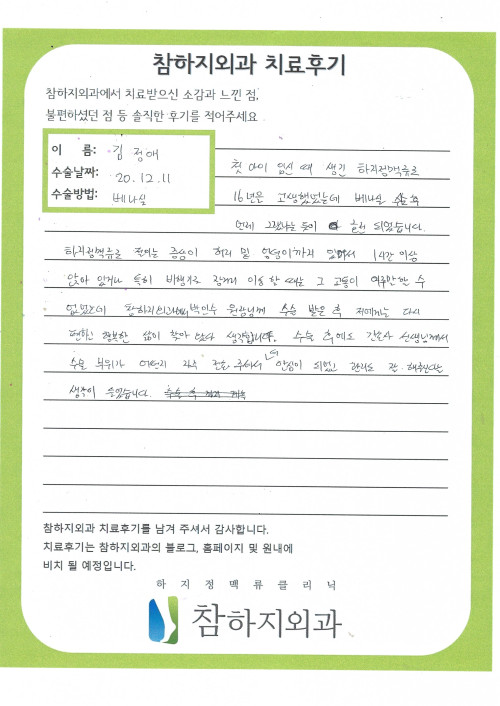 참하지외과 치료후기
참하지외과에서 치료받으신 소감과 느낀 점,
불편하셨던 점 등 솔직한 후기를 적어주세요
이 름: 김정애
수술날짜: 20.12.11
수술방법: 베나실
첫 아이 임신 때 생긴 하지정맥류로
16년은 고생했었는데 베나실 수술 후
언제 그랬냐는 듯이 훌현 되었습니다.
하지정맥류로 전이는 증상이 허리 밑 엉덩이까지 있어서 1시간 이상
앉아 있거나 특히 비행기로 장거리 이동 할 때는 그 고통이 이루말할 수
없었는데 참하지외과 박인수 원장님께 수술 받은 후 저에게는 다시
편한 행복한 삶이 찾아 왔다 생각합니다. 수술 후에도 간호사 선생님께서
수술 부위가 어떤지 자주 전화 주셔서 안심이 되었고 관리도 잘 해준다는
생각이 들었습니다.
참하지외과 치료후기를 남겨 주셔서 감사합니다.
치료후기는 참하지외과의 블로그, 홈페이지 및 원내에
비치 될 예정입니다.
하지정맥류클리닉
참하지외과